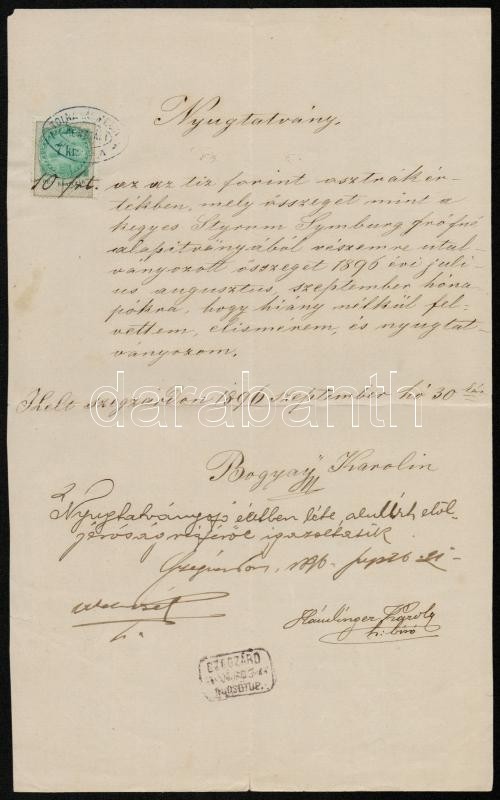 Nyugtatvány.
7 kr.
10 frt. az az tiz forint osztrák ér-
tékben, mely összeget mint a
kegyes Styrum Symburg grófné
alapitványából részemre utal-
ványozott összeget 1896 évi juli
us augusztus, szeptember hóna
pokra, hogy hiány nélkül fel-
vettem, elismérem, és nyugtat-
ványozom.
Kelt Szegzárdon 1896 szeptember hó 30 kán
darabanth
Bogyaÿ Karolin
Nyugtatványozó életben léte, alulirt elöl-
járóság részéröl igazoltatik
Szegzárdon, 1896
Háudinger Károly
h. biró
SZEGZÁRD